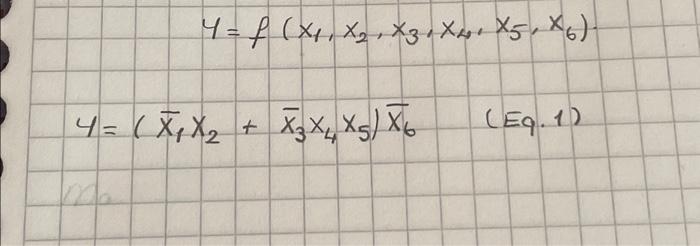 Y = f (x1, x2, x3, x4, x5, x6).
Y = ( x̅1 x2 + x̅3 x4 x5) x̅6 (Eq. 1)